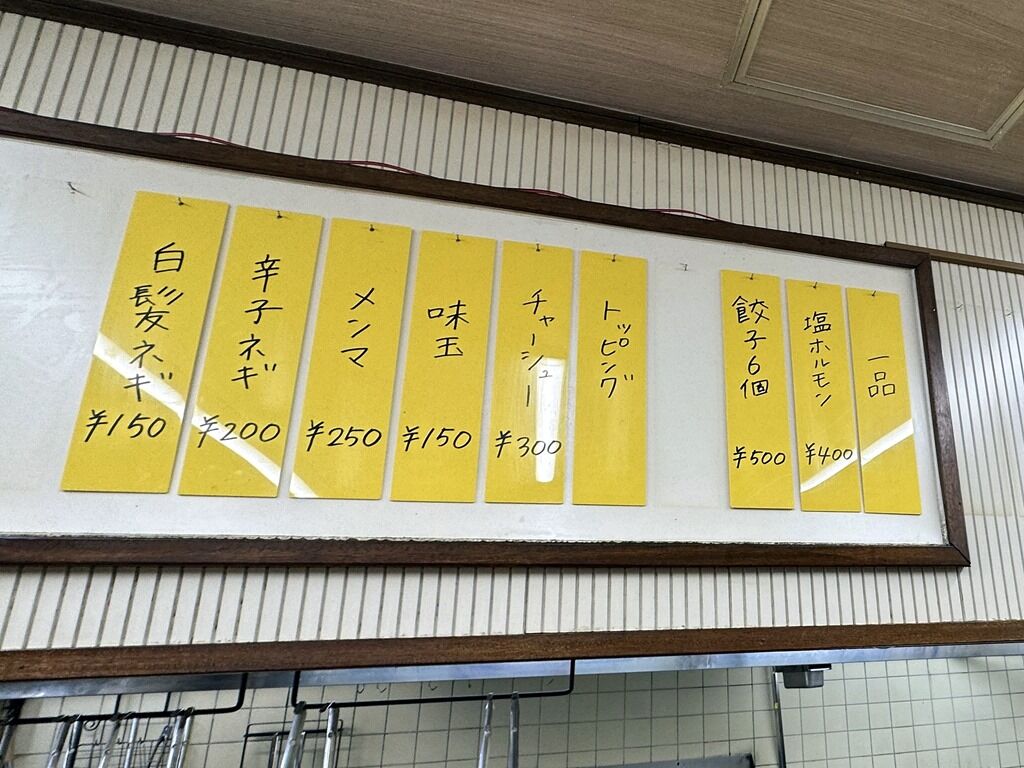 一品
塩ホルモン
¥400
餃子6個
¥500
トッピング
チャーシュー
¥300
味玉
¥150
メンマ
¥250
辛子ネギ
¥200
白髪ネギ
¥150